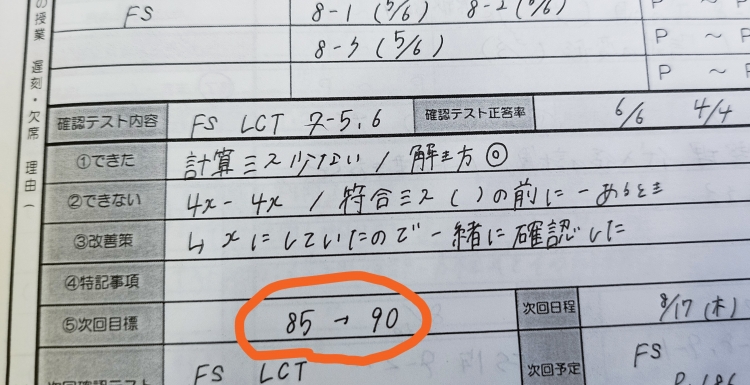 の授業 遅刻・欠席 理由(
FS 8-1 (5/6) 8-2 (5/6)
8-3 (5/6) P ~ P
P ~ P
P ~
確認テスト内容 FS LCT 7-5,6 確認テスト正答率 6/6 4/4
①できた 計算ミス少ない / 解き方◎
②できない 4x-4x / 符合ミス ( )の前に-あるとき
③改善策 ↳ xにしていたので一緒に確認した
④特記事項
⑤次回目標 85→90 次回日程 8/17(木)
次回確認テスト FS LCT 次回予定 FS
P.186